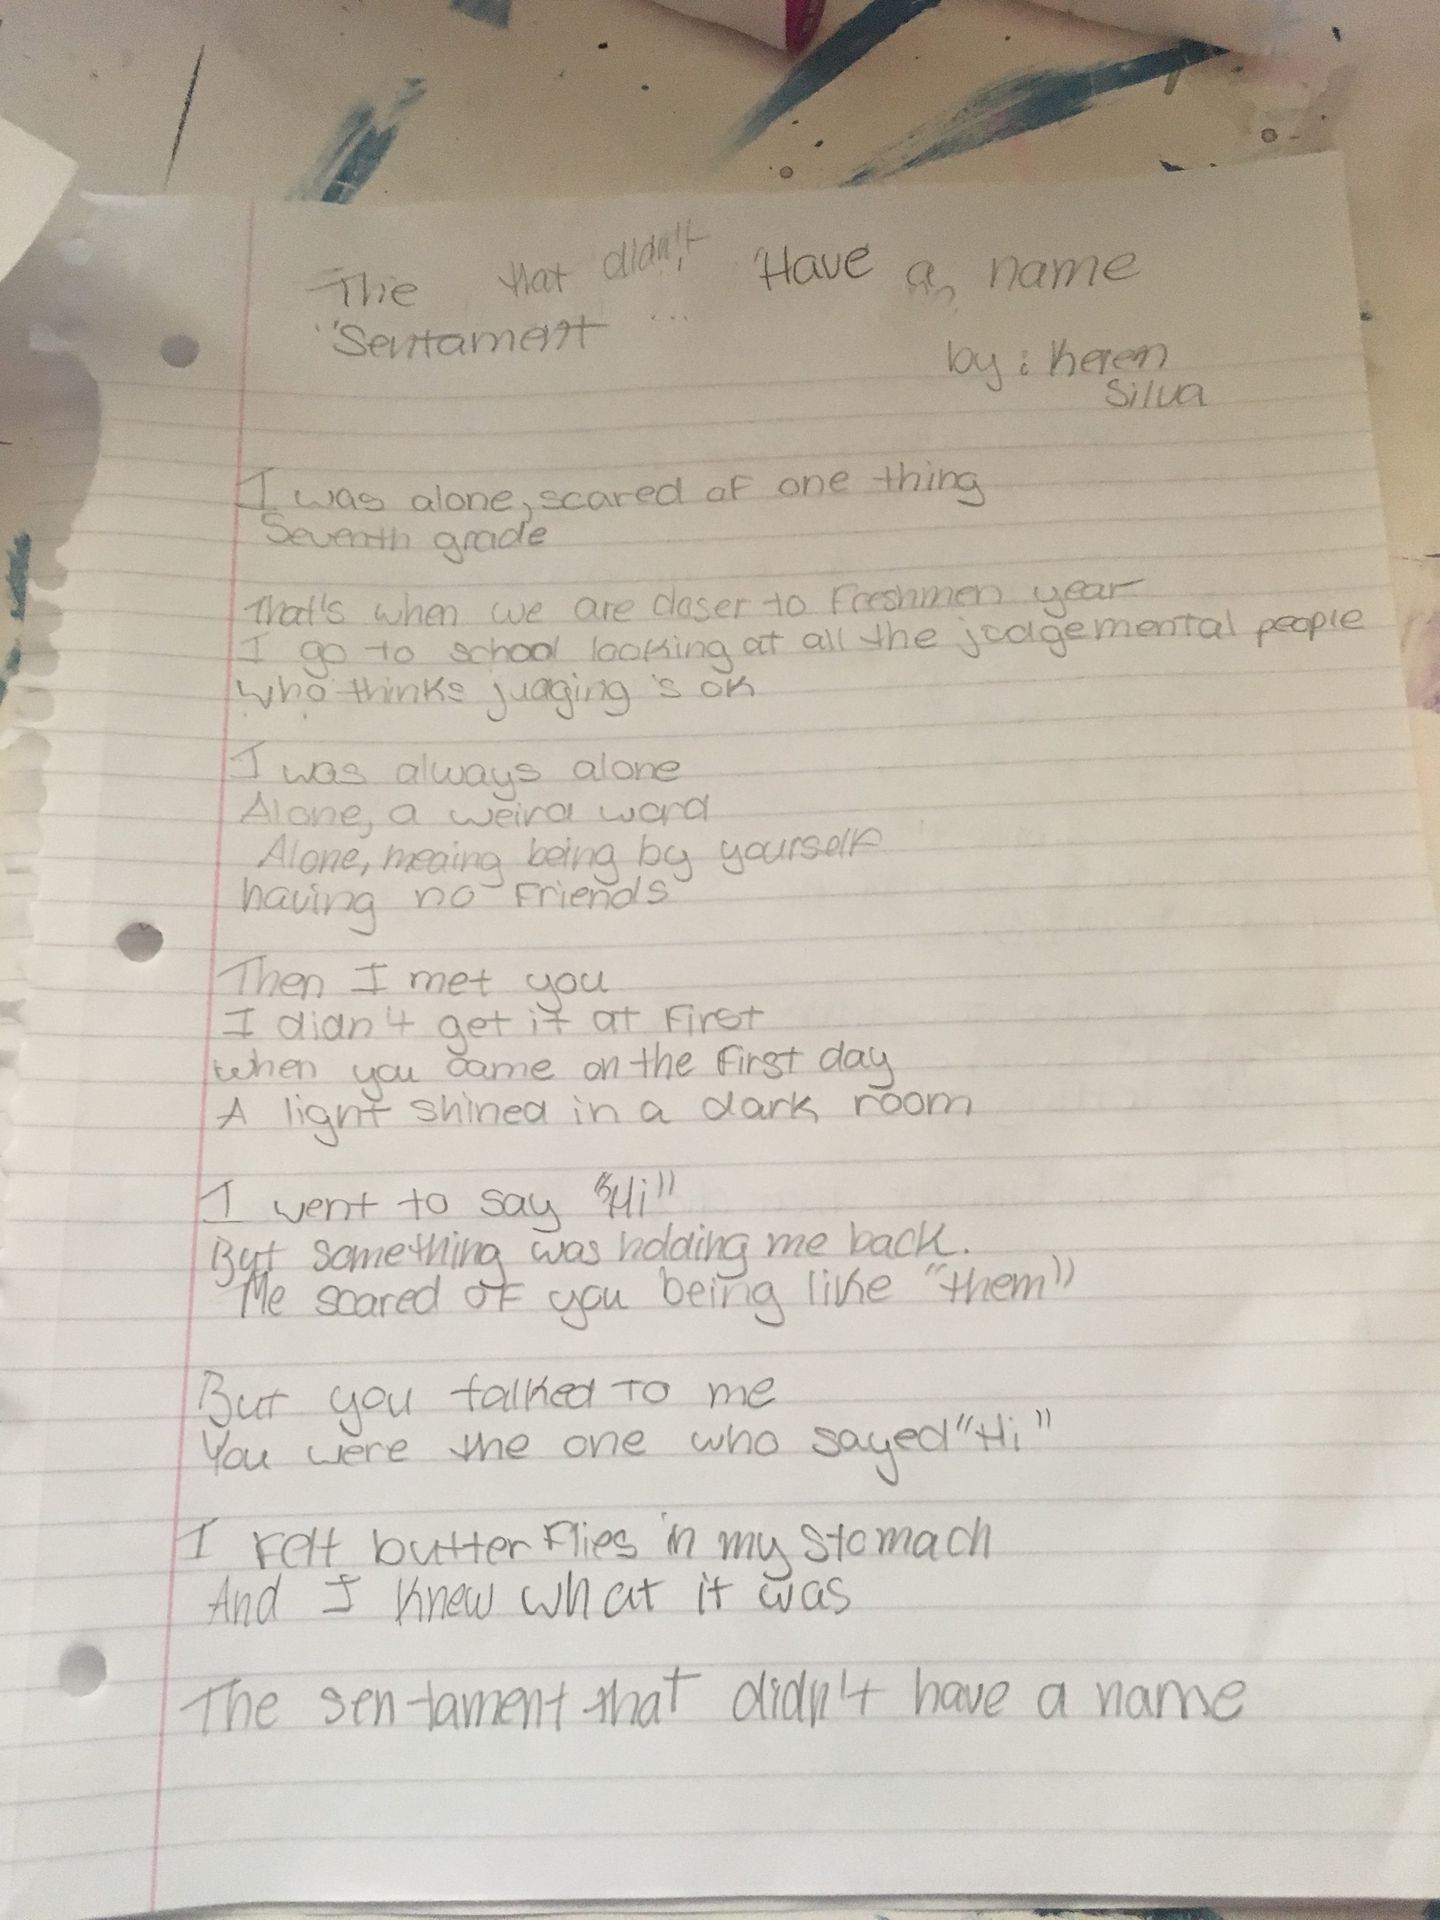 The that didn't Have a name
"Sentament ...
by: Keren
Silva
I was alone, scared of one thing
Seventh grade
That's when we are closer to Freshmen year
I go to school looking at all the judgemental people
who thinks judging is ok
I was always alone
Alone, a weird word
Alone, meaing being by yourself
having no Friends
Then I met you
I didn't get it at First
when you came on the First day
A light shined in a dark room
I went to say "Hi"
But something was holding me back.
Me scared of you being like "them"
But you talked to me
You were the one who sayed "Hi"
I Felt butterflies in my stomach
And I knew what it was
The sentament that didn't have a name